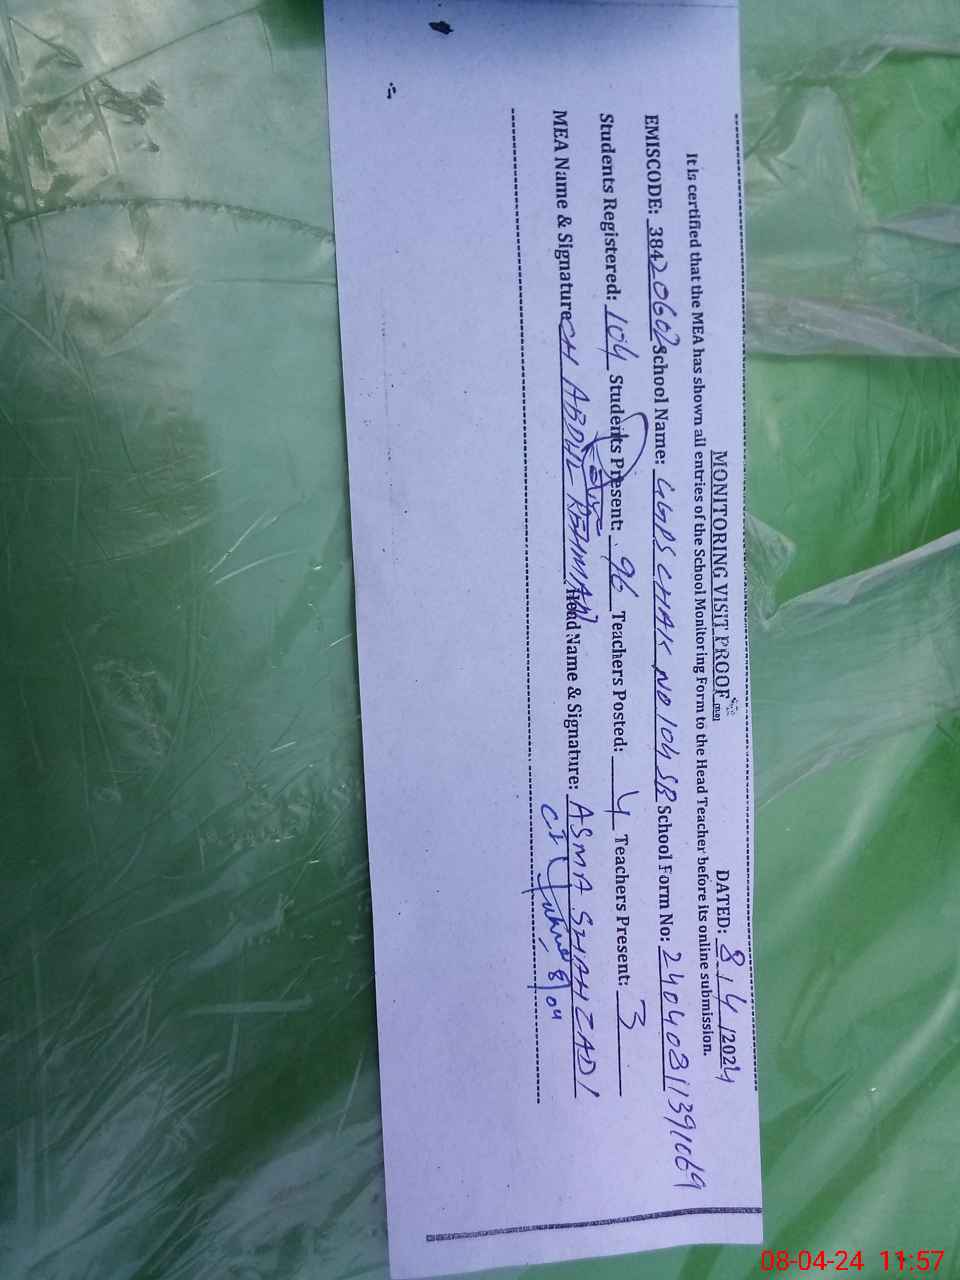 MONITORING VISIT PROOF DATED: 8/4/2024
It is certified that the MEA has shown all entries of the School Monitoring Form to the Head Teacher before its online submission.
EMISCODE: 38420602 School Name: GGPS CHAK NO 104 SB School Form No: 24040811391069
Students Registered: 104 Students Present: 96 Teachers Posted: 4 Teachers Present: 3
MEA Name & Signature CH ABDUL REHMAN Head Name & Signature: ASMA SHAHZADI
8/04
08-04-24 11:57